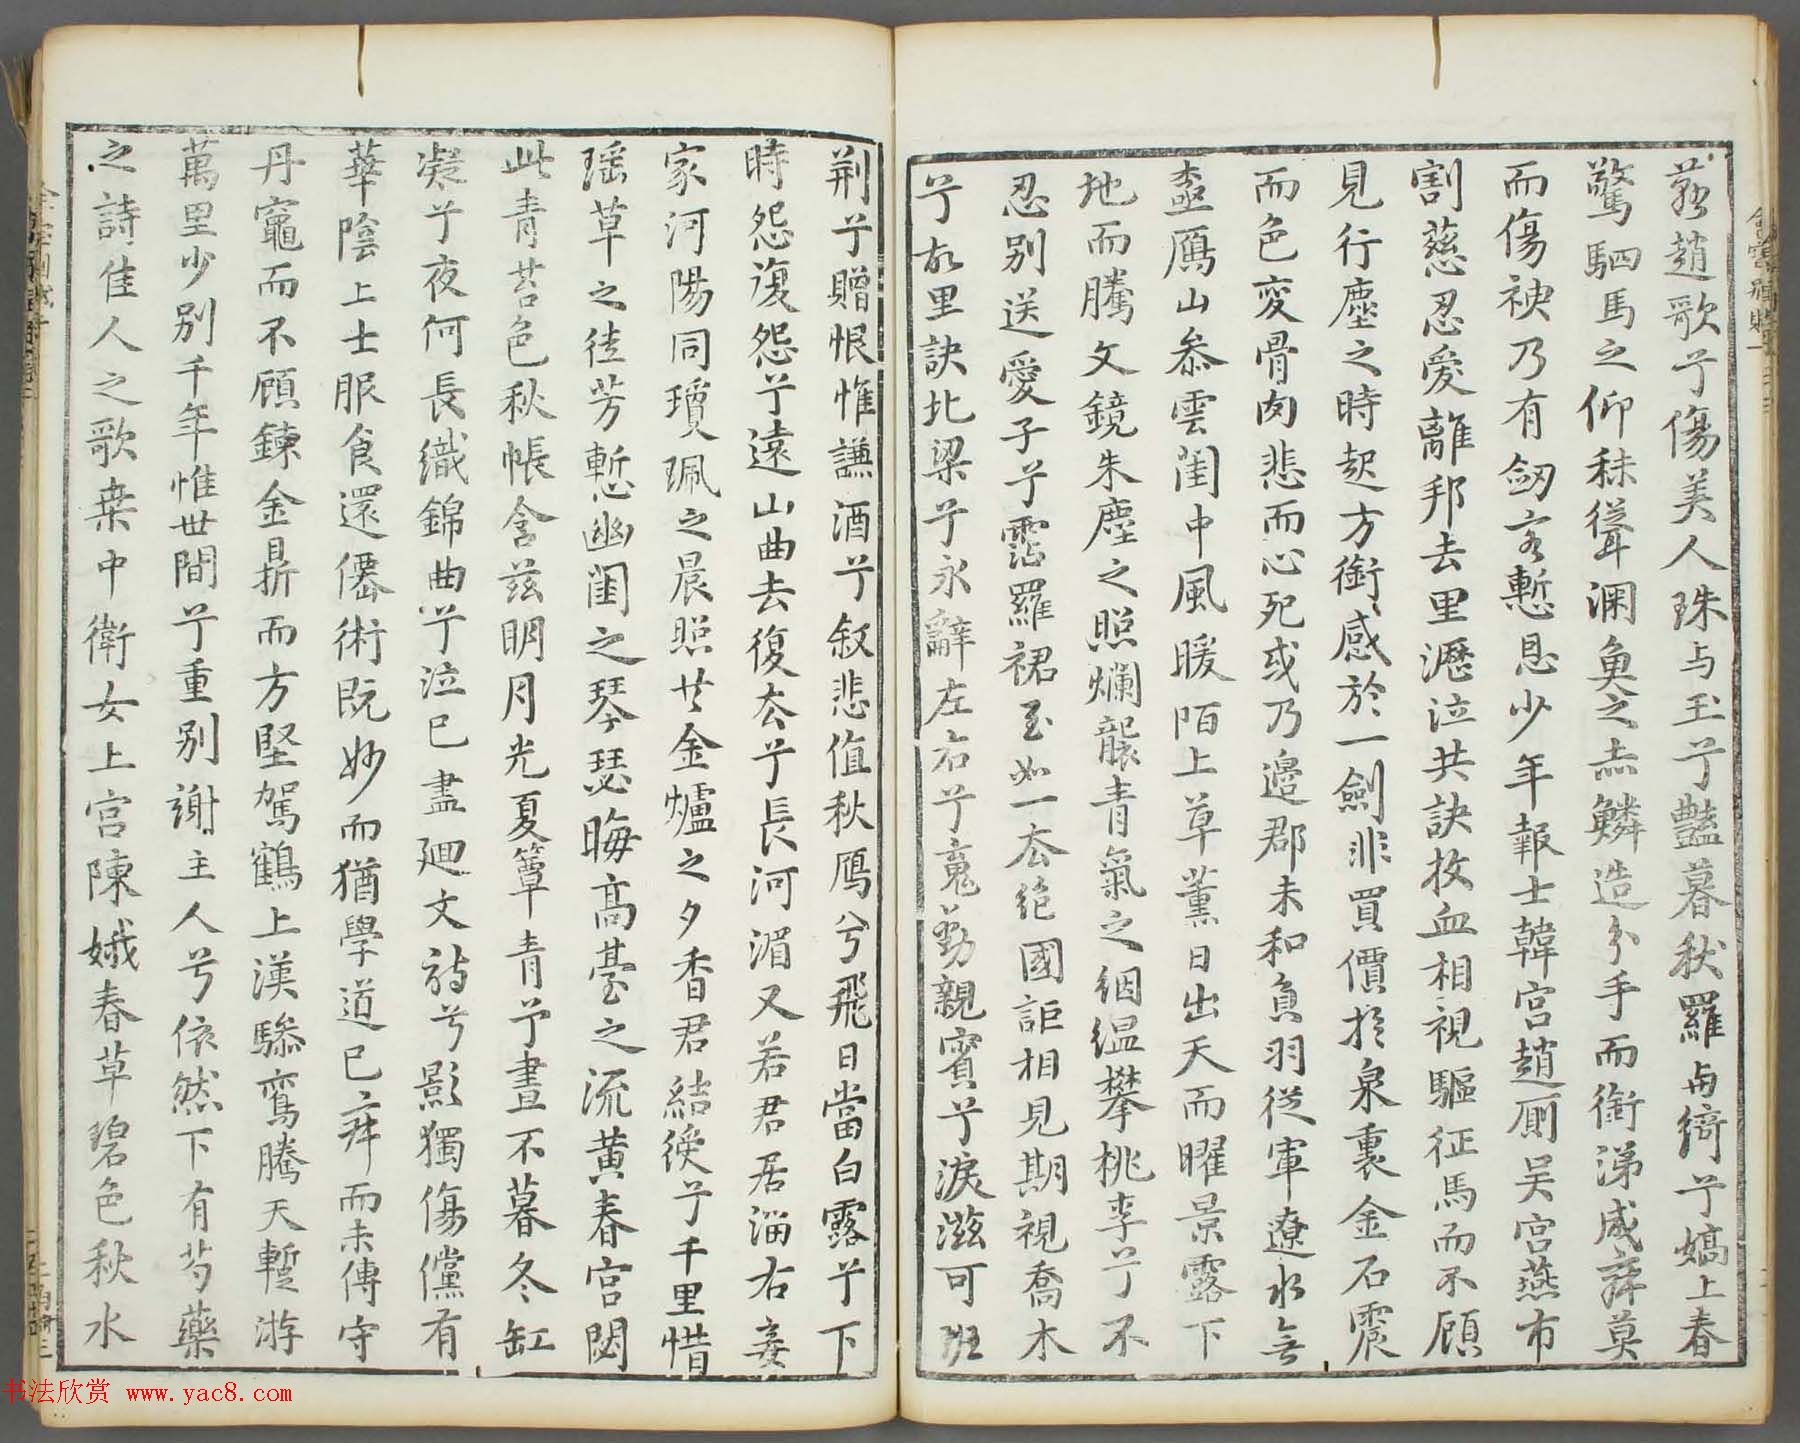 燕趙歌兮傷美人珠与玉兮豔暮秋羅与綺兮嬌上春
驚駟馬之仰秣聳淵魚之赤鱗造分手而銜涕咸辞莫
而傷神乃有劒客慙恩少年報士韓宮趙厠吴宮燕市
割慈忍爱離邦去里瀝泣共訣抆血相視驅征馬而不顧
見行塵之時起方銜感於一劍非買價於泉裏金石震
而色变骨肉悲而心死或乃邉郡未和負羽從軍遼水無
極鴈山叅雲閨中風暖陌上草薰日出天而曜景露下
地而騰文鏡朱塵之照爛襲青氣之絪縕攀桃李兮不
忍别送愛子兮霑羅裙至如一去绝國詎相見期視喬木
兮故里訣北梁兮永辭左右兮䰟動親賓兮淚滋可班
荆兮贈恨惟謙酒兮叙悲值秋鴈兮飛日當白露兮下
時怨復怨兮遠山曲去復去兮長河湄又若君居淄右妾
家河陽同瓊珮之晨照共金爐之夕香君結綬兮千里惜
瑶草之徒芳慙幽閨之琴瑟晦髙臺之流黄春宮閟
此青苔色秋帳含兹明月光夏簟青兮晝不暮冬缸
凝兮夜何長織錦曲兮泣已盡廻文詩兮影獨傷儻有
華陰上士服食還僊術既妙而猶學道已寂而未傳守
丹竈而不顧鍊金鼎而方堅駕鶴上漢驂鸞騰天蹔游
萬里少别千年惟世間兮重别谢主人兮依然下有芍藥
之詩佳人之歌桒中衛女上宮陳娥春草碧色秋水
书法欣赏 www.yac8.com